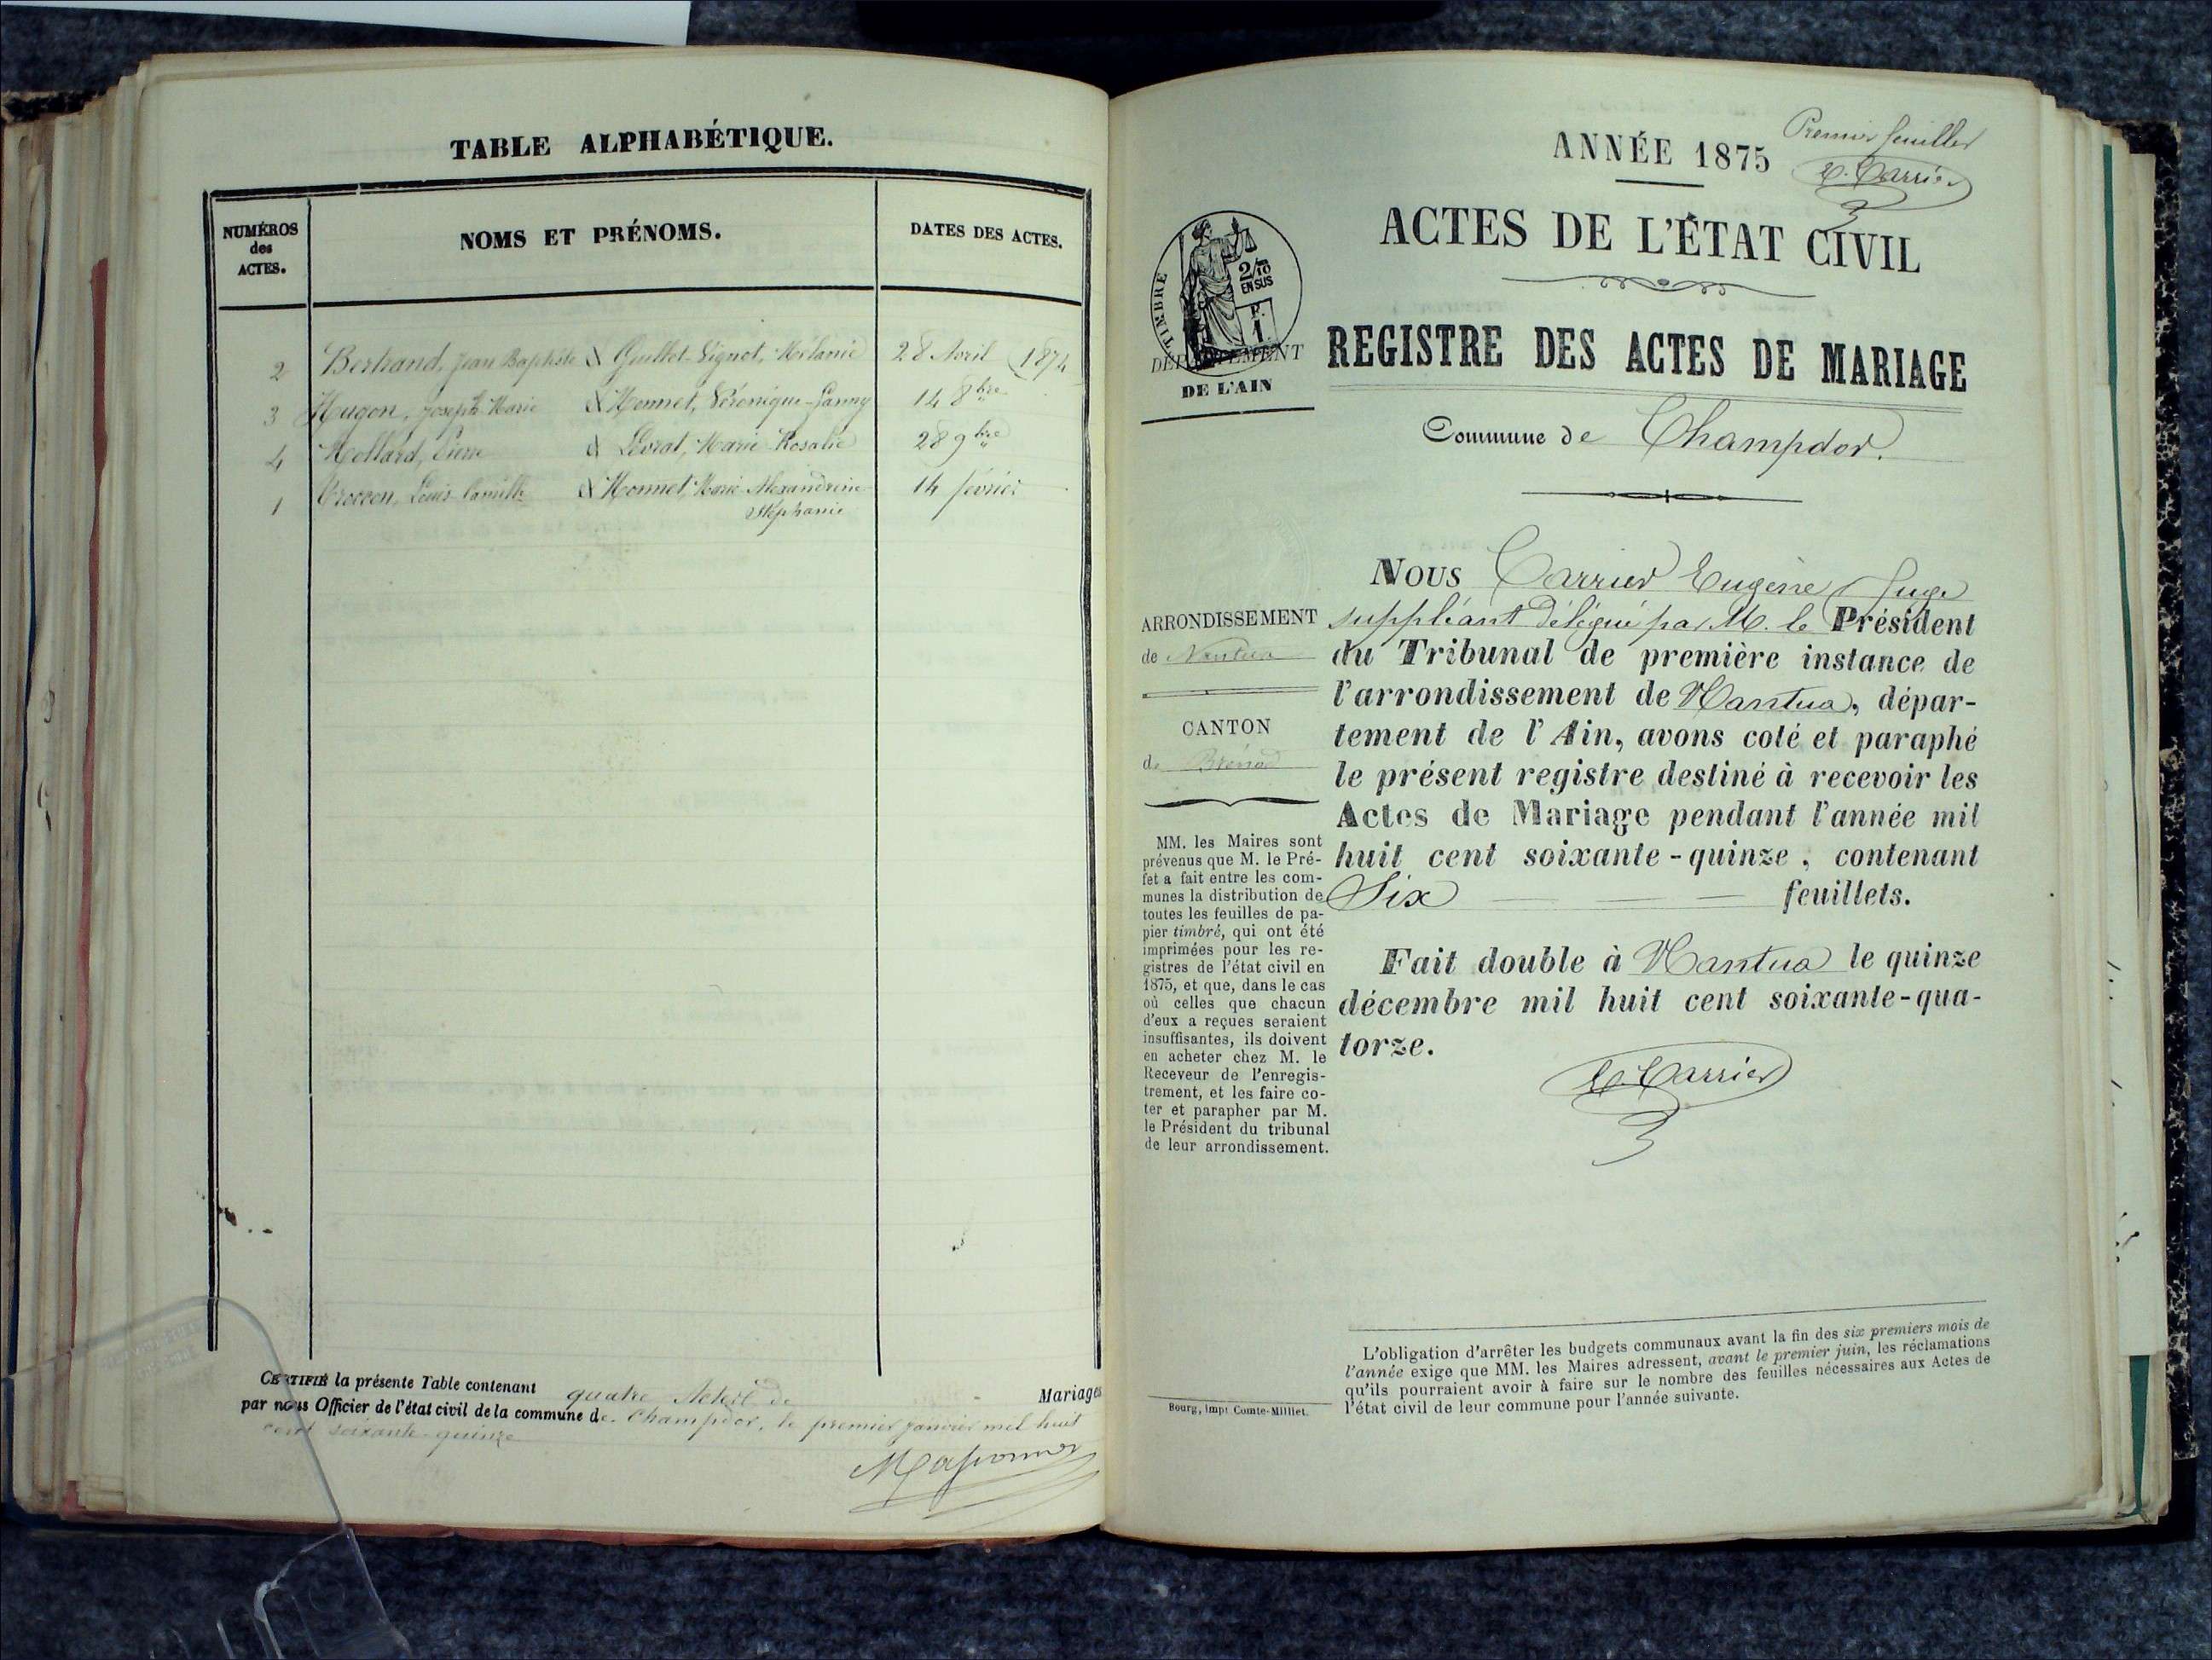 TABLE ALPHABÉTIQUE.
NUMÉROS
des
ACTES.
NOMS ET PRÉNOMS.
DATES DES ACTES.
2 Bertrand, Jean Baptiste & Guillot-Vignot, Mélanie 28 Avril (1874
3 Hugon, Joseph Marie & Monnet, Véronique-Fanny 14 8bre "
4 Mollard, Pierre & Levrat, Marie Rosalie 28 9bre "
1 Louis Camille & Monnet, Marie Alexandrine 14 février
Stéphanie
CERTIFIÉ la présente Table contenant quatre Actes de Mariages
par nous Officier de l'état civil de la commune de Champdor, le premier janvier mil huit
cent soixante-quinze
Premier feuillet
E. Carrier
ANNÉE 1875
ACTES DE L'ÉTAT CIVIL
TIMBRE
2/10
EN SUS
F.
1
DÉPARTEMENT
DE L'AIN
REGISTRE DES ACTES DE MARIAGE
Commune de Champdor.
ARRONDISSEMENT
de Nantua
CANTON
de Brénod
MM. les Maires sont
prévenus que M. le Pré-
fet a fait entre les com-
munes la distribution de
toutes les feuilles de pa-
pier timbré, qui ont été
imprimées pour les re-
gistres de l'état civil en
1875, et que, dans le cas
où celles que chacun
d'eux a reçues seraient
insuffisantes, ils doivent
en acheter chez M. le
Receveur de l'enregis-
trement, et les faire co-
ter et parapher par M.
le Président du tribunal
de leur arrondissement.
Nous Carrier Eugène Juge
suppléant délégué par M. le Président
du Tribunal de première instance de
l'arrondissement de Nantua, dépar-
tement de l'Ain, avons coté et paraphé
le présent registre destiné à recevoir les
Actes de Mariage pendant l'année mil
huit cent soixante-quinze, contenant
Six feuillets.
Fait double à Nantua le quinze
décembre mil huit cent soixante-qua-
torze.
E. Carrier
L'obligation d'arrêter les budgets communaux avant la fin des six premiers mois de
l'année exige que MM. les Maires adressent, avant le premier juin, les réclamations
qu'ils pourraient avoir à faire sur le nombre des feuilles nécessaires aux Actes de
l'état civil de leur commune pour l'année suivante.
Bourg, impr Comte-Milliet.